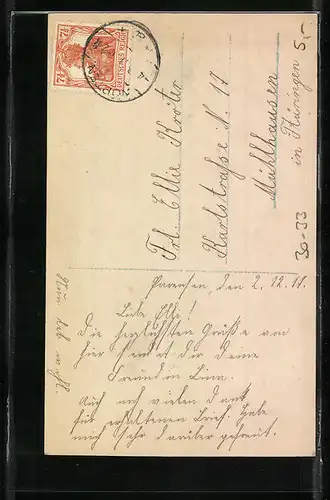 7½
DEUTSCHES REICH
7½
Frl. Ellie Kröter
Karlstraße N. 17
Mühlhausen
in Thüringen
5,-
30-33
Parensen, den 2.12.17.
Liebe Elli!
Die herzlichsten Grüße von
hier sendet dir deine
Freundin Lina.
Auch noch vielen Dank
für erhaltenen Brief. Habe
mich sehr darüber gefreut.